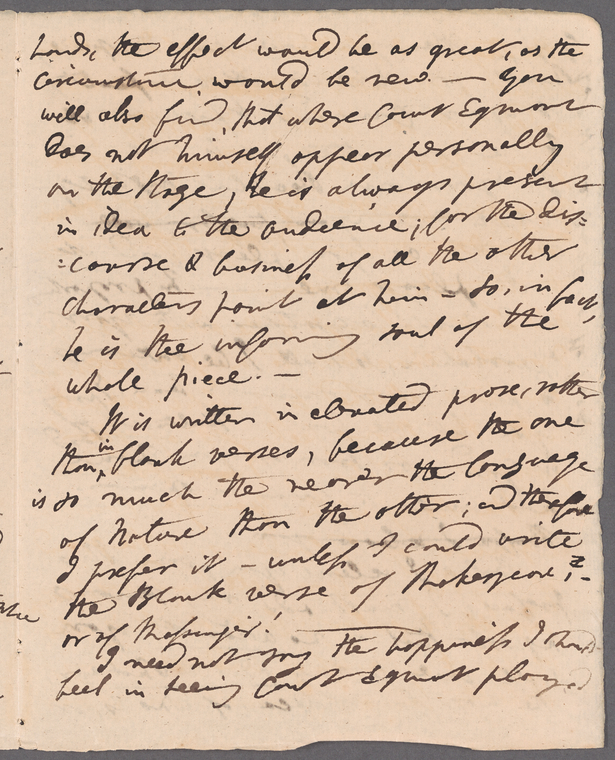 hands, the effect would be as great, as the
circumstance would be new. — You
will also find, that where Count Egmont
does not himself appear personally
on the Stage, he is always present
in idea to the audience; for the dis=
=course & business of all the other
characters point at him – So, in fact,
he is the informing soul of the
whole piece. —
It is written in elevated prose, rather
than in blank verses, because the one
is so much the nearer the language
of Nature than the other; and therefore
I prefer it – unless I could write
the Blank verse of Shakespear, –
or of Massinger! —
I need not say the happiness I should
feel in seeing Count Egmont played